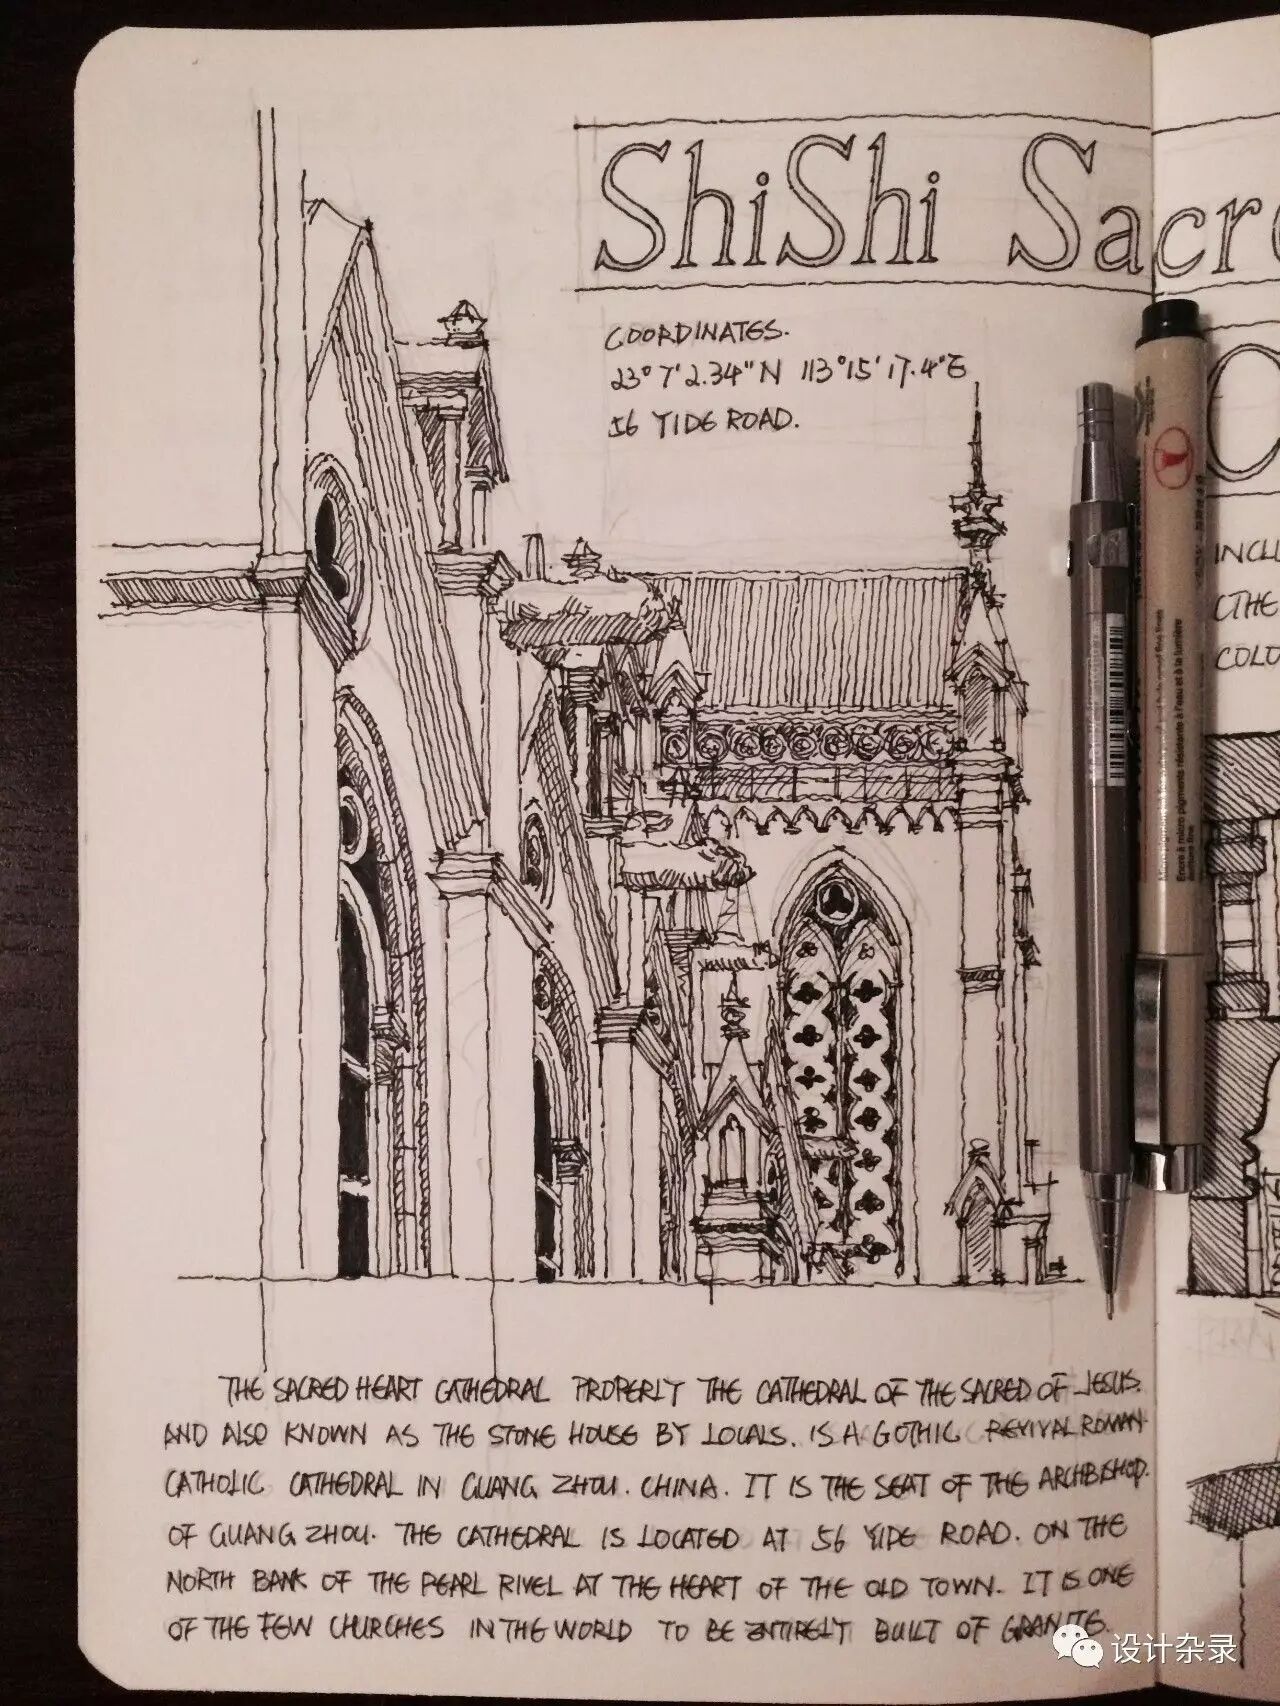 ShiShi Sacr
COORDINATES.
23° 7' 2.34" N 113° 15' 17.4" E
56 YIDE ROAD.
INCLU
(THE
COLO
THE SACRED HEART CATHEDRAL PROPERLY THE CATHEDRAL OF THE SACRED OF JESUS.
AND ALSO KNOWN AS THE STONE HOUSE BY LOCALS. IS A GOTHIC REVIVAL ROMAN
CATHOLIC CATHEDRAL IN GUANG ZHOU. CHINA. IT IS THE SEAT OF THE ARCHBISHOP.
OF GUANG ZHOU. THE CATHEDRAL IS LOCATED AT 56 YIDE ROAD. ON THE
NORTH BANK OF THE PEARL RIVEL AT THE HEART OF THE OLD TOWN. IT IS ONE
OF THE FEW CHURCHES IN THE WORLD TO BE ENTIRELY BUILT OF GRANITE.
设计杂录